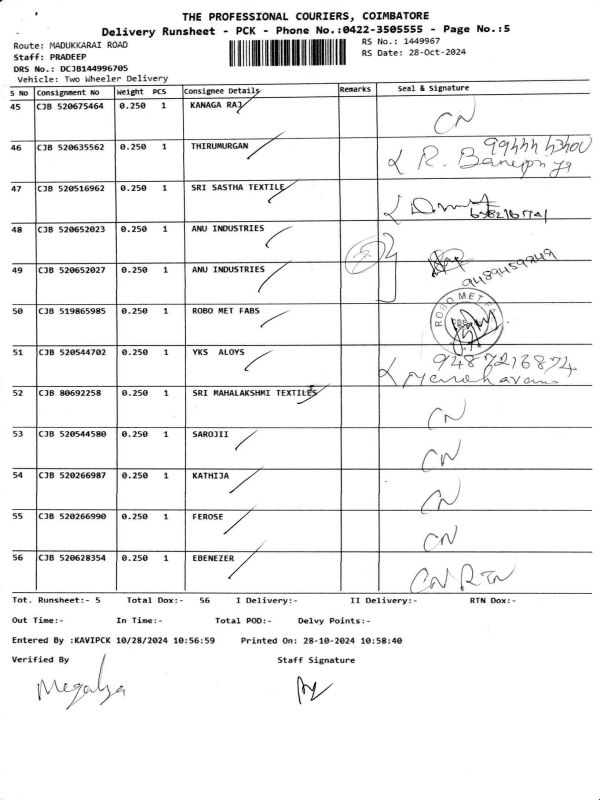 THE PROFESSIONAL COURIERS, COIMBATORE
Delivery Runsheet - PCK - Phone No.:0422-3505555 - Page No.:5
Route: MADUKKARAI ROAD
RS No.: 1449967
Staff: PRADEEP
RS Date: 28-Oct-2024
DRS No.: DCJB144996705
Vehicle: Two Wheeler Delivery
S No Consignment No Weight PCS Consignee Details Remarks Seal & Signature
45 CJB 520675464 0.250 1 KANAGA RAJ CN
46 CJB 520635562 0.250 1 THIRUMURGAN
47 CJB 520516962 0.250 1 SRI SASTHA TEXTILE
48 CJB 520652023 0.250 1 ANU INDUSTRIES
49 CJB 520652027 0.250 1 ANU INDUSTRIES
50 CJB 519865985 0.250 1 ROBO MET FABS ROBO MET
51 CJB 520544702 0.250 1 YKS ALOYS 9487216874
52 CJB 80692258 0.250 1 SRI MAHALAKSHMI TEXTILES CN
53 CJB 520544580 0.250 1 SAROJII CN
54 CJB 520266987 0.250 1 KATHIJA CN
55 CJB 520266990 0.250 1 FEROSE CN
56 CJB 520628354 0.250 1 EBENEZER CN RTN
Tot. Runsheet:- 5 Total Dox:- 56 I Delivery:- II Delivery:- RTN Dox:-
Out Time:- In Time:- Total POD:- Delvy Points:-
Entered By :KAVIPCK 10/28/2024 10:56:59 Printed On: 28-10-2024 10:58:40
Verified By Staff Signature